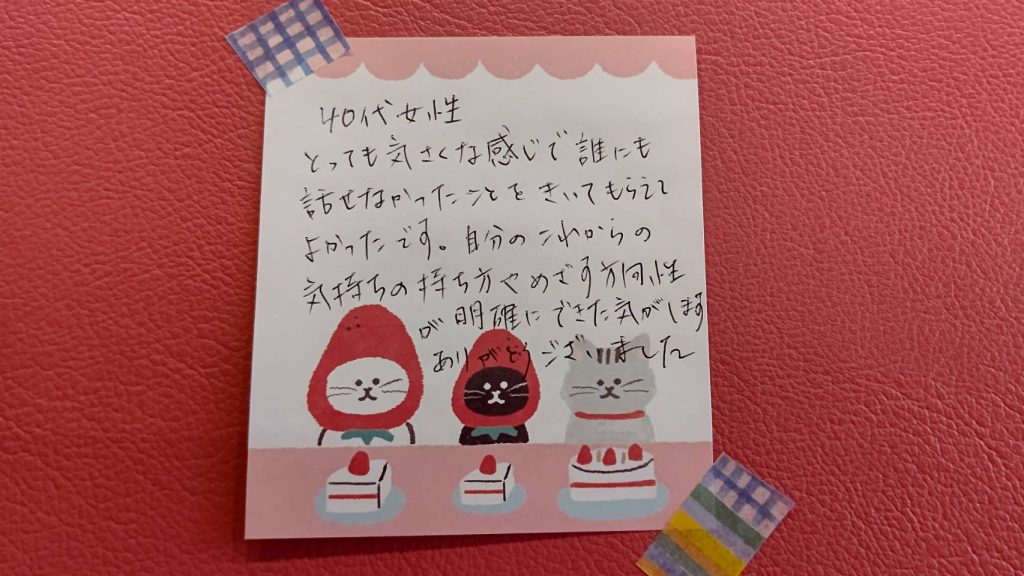 40代女性
とっても気さくな感じで誰にも
話せなかったことをきいてもらえて
よかったです。自分のこれからの
気持ちの持ち方やめざす方向性
が明確にできた気がします
ありがとうございました